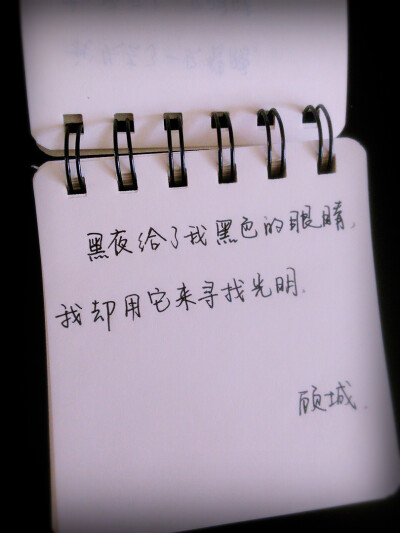 黑夜给了我黑色的眼睛,
我却用它来寻找光明.
顾城.